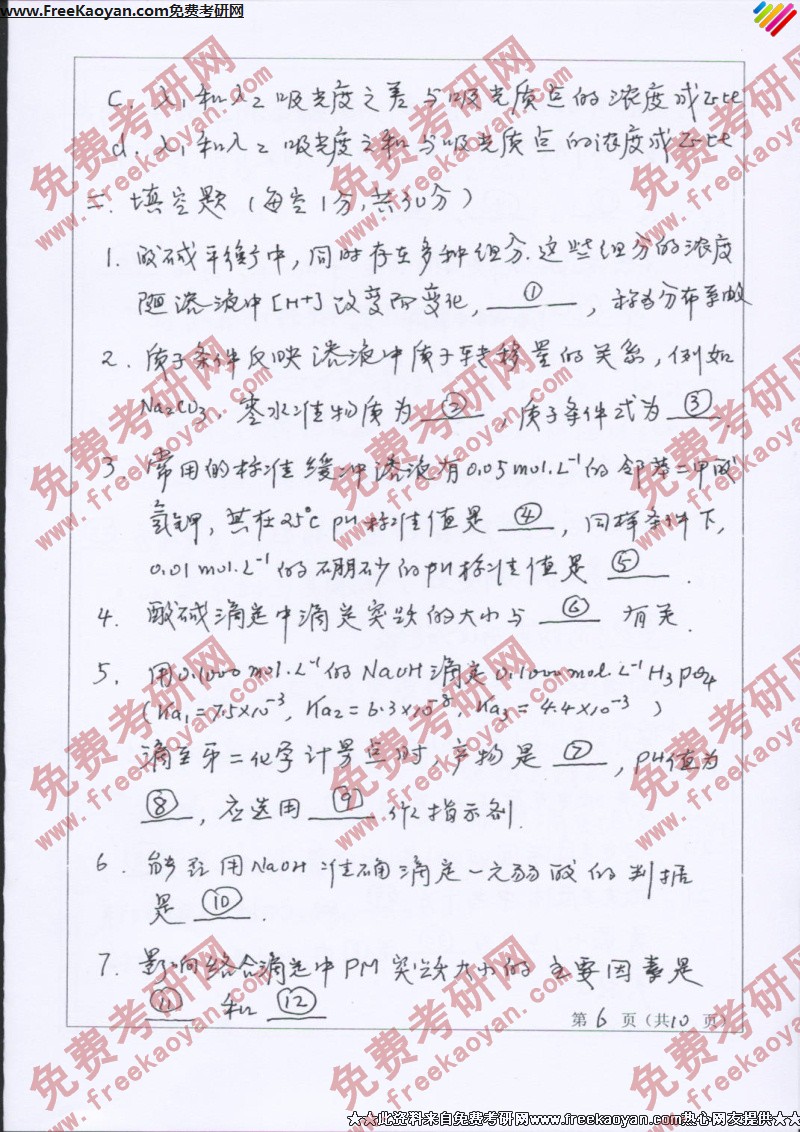 www.FreeKaoyan.com免费考研网
c. λ1和λ2吸光度之差与吸光质点的浓度成正比
d. λ1和λ2吸光度之和与吸光质点的浓度成正比
二. 填空题 (每空1分,共30分)
1. 酸碱平衡中,同时存在多种组分.这些组分的浓度
随溶液中[H+]改变而变化, ① , 称为分布系数
2. 质子条件反映溶液中质子转移量的关系, 例如
Na2CO3, 零水准物质为 ② , 质子条件式为 ③ .
3. 常用的标准缓冲溶液有0.05mol.L⁻¹的邻苯二甲酸
氢钾, 其在25℃ pH标准值是 ④ , 同样条件下,
0.01mol.L⁻¹的硼砂的pH标准值是 ⑤ .
4. 酸碱滴定中滴定突跃的大小与 ⑥ 有关.
5. 用0.1000mol.L⁻¹的NaOH滴定0.1000mol.L⁻¹H3PO4
(Ka1=7.5×10⁻³, Ka2=6.3×10⁻⁸, Ka3=4.4×10⁻³)
滴至第二化学计量点时, 产物是 ⑦ , pH值为
⑧ , 应选用 ⑨ 作指示剂.
6. 能否用NaOH准确滴定一元弱酸的判据
是 ⑩ .
7. 影响络合滴定中PM突跃大小的主要因素是
⑪ 和 ⑫
第 6 页(共10 页)
免费考研网
www.freekaoyan.com
★★此资料来自免费考研网www.freekaoyan.com热心网友提供★★